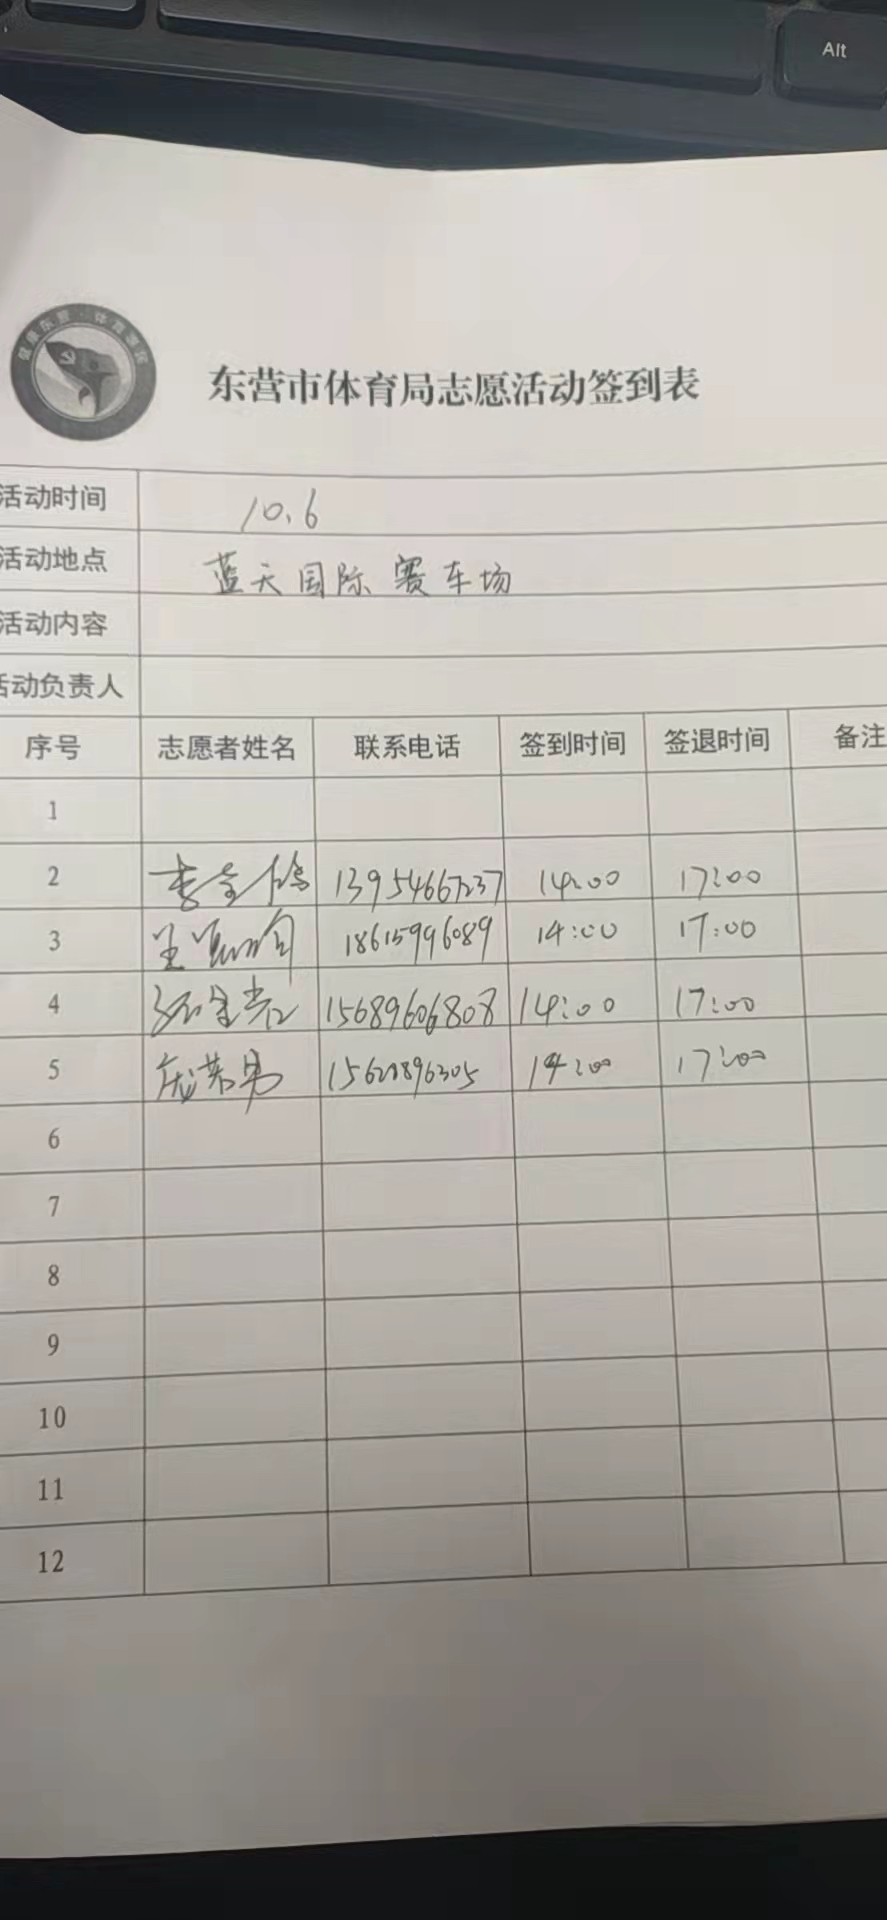 Alt
健康东营·体育惠民
东营市体育局志愿活动签到表
活动时间 10.6
活动地点 蓝天国际赛车场
活动内容
活动负责人
序号 志愿者姓名 联系电话 签到时间 签退时间 备注
1
2 13954667237 14:00 17:00
3 18615996089 14:00 17:00
4 15689606808 14:00 17:00
5 14:00 17:00
6
7
8
9
10
11
12